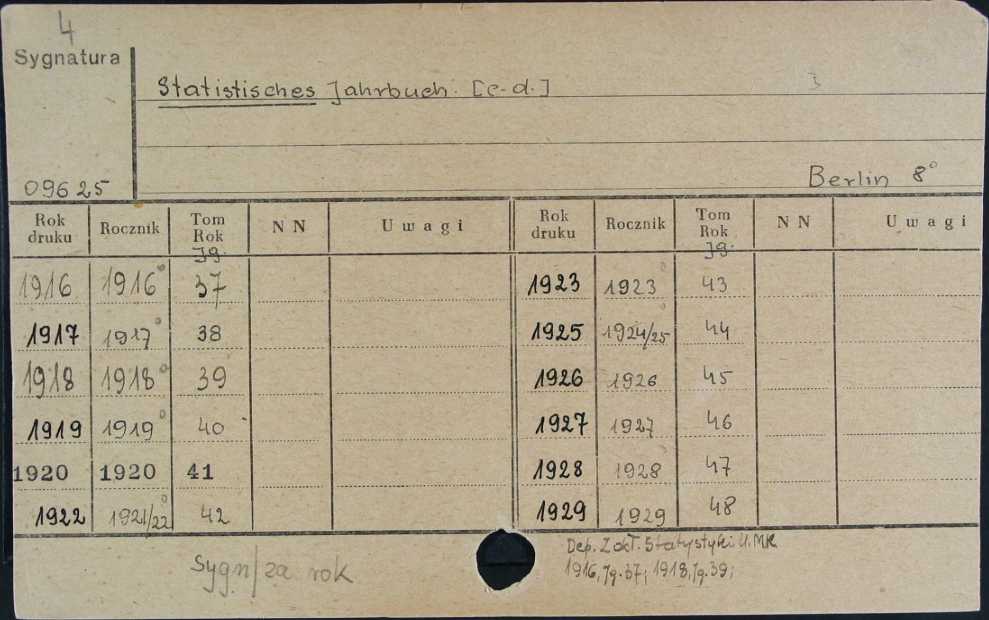 4
Sygnatura
Statistisches Jahrbuch. [c.d.] 3
09625 Berlin 8°
Rok druku Rocznik Tom Rok Jg. NN Uwagi Rok druku Rocznik Tom Rok Jg. NN Uwagi
1916 1916° 37 1923 1923° 43
1917 1917° 38 1925 1924/25° 44
1918 1918° 39 1926 1926 45
1919 1919° 40 1927 1927 46
1920 1920 41 1928 1928° 47
1922 1921/22° 42 1929 1929 48
Sygn/za rok
Dep. Zakł. Statystyki U.MK
1916, Jg. 37; 1918, Jg. 39;